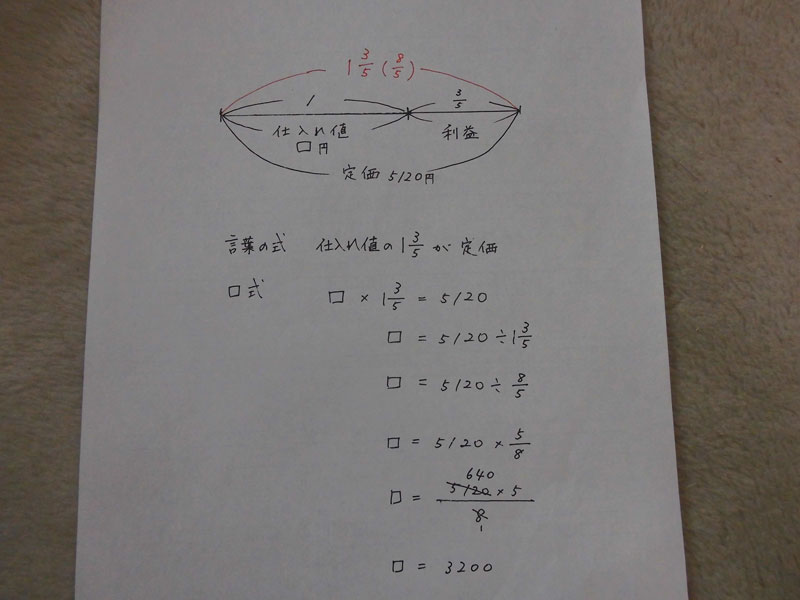 1 3/5 (8/5)
1 3/5
仕入れ値 利益
□円
定価 5120円
言葉の式 仕入れ値の1 3/5 が 定価
□式 □ × 1 3/5 = 5120
□ = 5120 ÷ 1 3/5
□ = 5120 ÷ 8/5
□ = 5120 × 5/8
640
□ = 5120 × 5 / 8
1
□ = 3200